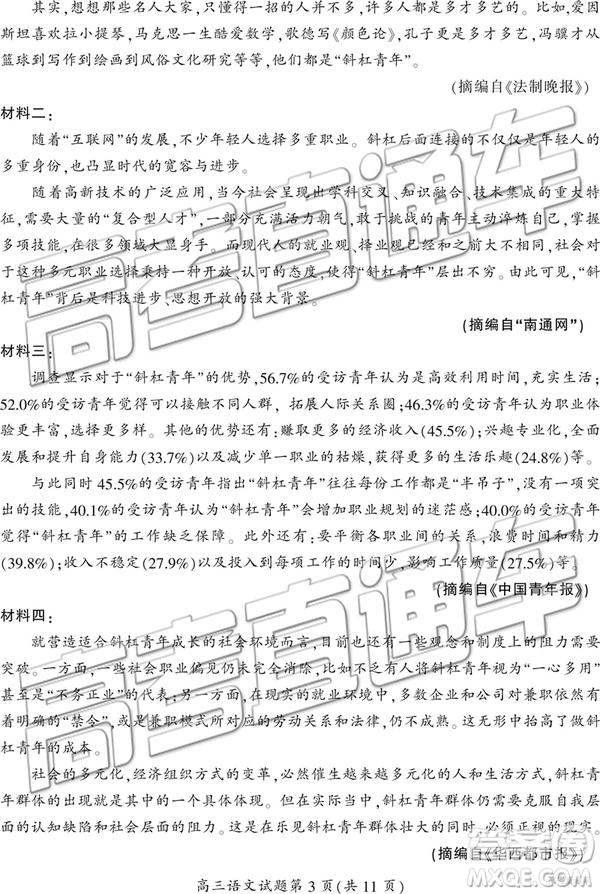 其实,想想那些名人大家,只懂得一招的人并不多,许多人都是多才多艺的。比如,爱因
斯坦喜欢拉小提琴,马克思一生酷爱数学,歌德写《颜色论》,孔子更是多才多艺,冯骥才从
篮球到写作到绘画到风俗文化研究等等,他们都是“斜杠青年”。
(摘编自《法制晚报》)
材料二:
随着“互联网”的发展,不少年轻人选择多重职业。斜杠后面连接的不仅仅是年轻人的
多重身份,也凸显时代的宽容与进步。
随着高新技术的广泛应用,当今社会呈现出学科交叉、知识融合、技术集成的重大特
征,需要大量的“复合型人才”,一部分充满活力朝气,敢于挑战的青年主动淬炼自己,掌握
多项技能,在很多领域大显身手。而现代人的就业观、择业观已经和之前大不相同,社会对
于这种多元职业选择秉持一种开放、认可的态度,使得“斜杠青年”层出不穷。由此可见,“斜
杠青年”背后是科技进步、思想开放的强大背景。
(摘编自“南通网”)
材料三:
调查显示对于“斜杠青年”的优势,56.7%的受访青年认为是高效利用时间,充实生活;
52.0%的受访青年觉得可以接触不同人群,拓展人际关系圈;46.3%的受访青年认为职业体
验更丰富,选择更多样。其他的优势还有:赚取更多的经济收入(45.5%);兴趣专业化,全面
发展和提升自身能力(33.7%)以及减少单一职业的枯燥,获得更多的生活乐趣(24.8%)等。
与此同时45.5%的受访青年指出“斜杠青年”往往每份工作都是“半吊子”,没有一项突
出的技能,40.1%的受访青年认为“斜杠青年”会增加职业规划的迷茫感;40.0%的受访青年
觉得“斜杠青年”的工作缺乏保障。此外还有:要平衡各职业间的关系,浪费时间和精力
(39.8%);收入不稳定(27.9%)以及投入到每项工作的时间少,影响工作质量(27.5%)等。
(摘编自《中国青年报》)
材料四:
就营造适合斜杠青年成长的社会环境而言,目前也还有一些观念和制度上的阻力需要
突破。一方面,一些社会职业偏见仍未完全消除,比如不乏有人将斜杠青年视为“一心多用”
甚至是“不务正业”的代表;另一方面,在现实的就业环境中,多数企业和公司对兼职依然有
着明确的“禁令”,或是兼职模式所对应的劳动关系和法律,仍不成熟。这无形中抬高了做斜
杠青年的成本。
社会的多元化,经济组织方式的变革,必然催生越来越多元化的人和生活方式,斜杠青
年群体的出现就是其中的一个具体体现。但在实际当中,斜杠青年群体仍需要克服自我层
面的认知缺陷和社会层面的阻力。这是在乐见斜杠青年群体壮大的同时,必须正视的现实。
(摘编自《华西都市报》)
高三语文试题第3页(共11页)
高考直通车
高考直通车